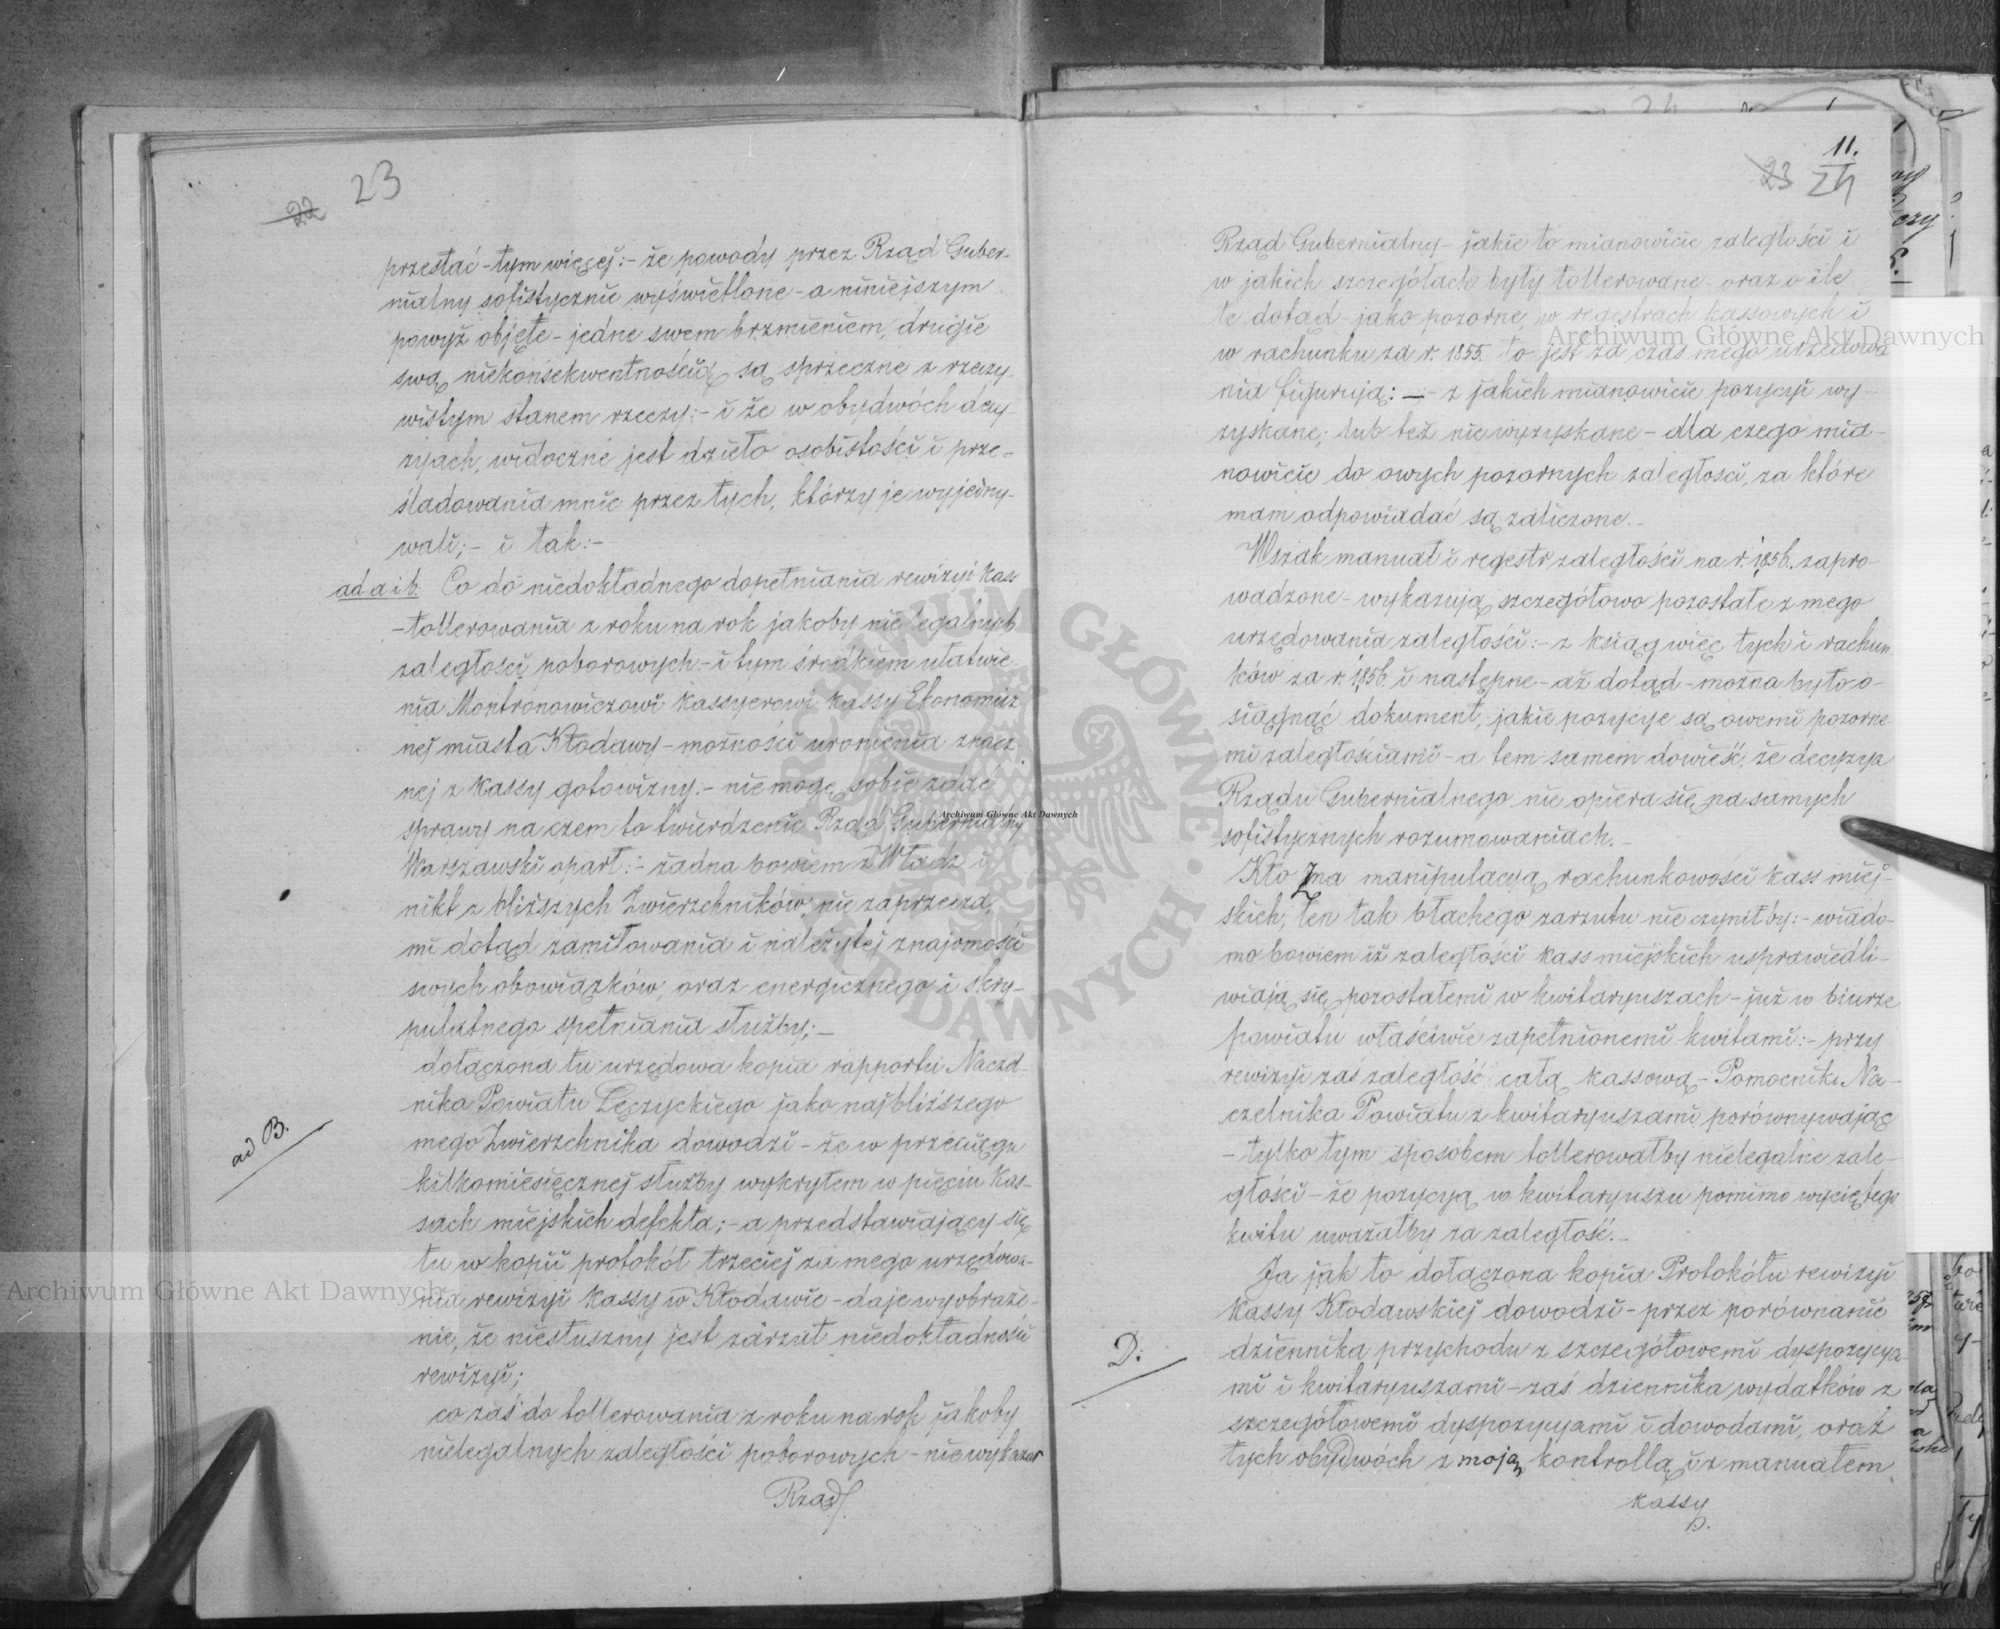 22 23
przestać - tym więcej: - że powody przez Rząd Guber-
nialny sofistycznie wyświetlone - a niniejszym
powyż objęte - jedne swem brzmieniem, drugie
swą niekonsekwentnością są sprzeczne z rzeczy-
wistym stanem rzeczy: - i że w obydwóch decy-
zyjach, widoczne jest dzieło osobistości i prze-
śladowania mnie przez tych, którzy je wyjedny-
wali; - i tak: -
ad a i b. Co do niedokładnego dopełniania rewizyi kass
- tollerowania z roku na rok jakoby nielegalnych
zaległości poborowych - i tym środkiem ułatwie-
nia Montronowiczowi Kassyerowi Kassy Ekonomicz
nej miasta Kłodawy - możności uronienia znacz
nej z Kassy gotowizny: - nie mogę sobie zdać
sprawy na czem to twierdzenie Rząd Gubernialny
Warszawski oparł: - żadna bowiem z Władz i
nikt z bliższych Zwierzchników, nie zaprzecza
mi dotąd zamiłowania i należytej znajomości
swych obowiązków, oraz energicznego i skry-
pulatnego spełniania służby; -
dołączona tu urzędowa kopia rapportu Naczel-
nika Powiatu Łęczyckiego jako najbliższego
ad B.
mego Zwierzchnika dowodzi - że w przeciągu
kilkomiesięcznej służby wykryłem w pięciu Kas-
sach miejskich defekta; - a przedstawiający się
tu w kopii protokół trzeciej za mego urzędowa-
nia rewizyi Kassy w Kłodawie - daje wyobraże-
nie, że niesłuszny jest zarzut niedokładności
rewizyi;
co zaś do tollerowania z roku na rok jakoby
nielegalnych zaległości poborowych - nie wykazał
Rząd
11.
23 24
Rząd Gubernialny - jakie to mianowicie zaległości i
w jakich szczegółach były tollerowane - oraz o ile
te dotąd - jako pozorne, w regestrach kassowych i
w rachunku za r. 1855. to jest za czas mego urzędowa
nia figurują: - z jakich mianowicie pozycyi wy-
zyskane; lub też nie wyzyskane - dla czego mia-
nowicie do owych pozornych zaległości, za które
mam odpowiadać są zaliczone. -
Wszak manuał i regestr zaległości na r. 1856. zapro-
wadzone - wykazują szczegółowo pozostałe z mego
urzędowania zaległości: - z ksiąg więc tych i rachun
ków za r. 1856. i następne - aż dotąd - można było o-
siągnąć dokument, jakie pozycye są owemi pozorne
mi zaległościami - a tem samem dowieść, że decyzya
Rządu Gubernialnego nie opiera się na samych
sofistycznych rozumowaniach. -
Kto zna manipulacyą rachunkowości kass miej-
skich, ten tak błachego zarzutu nie czyniłby: - wiado-
mo bowiem iż zaległości kass miejskich usprawiedli-
wiają się pozostałemi w kwitaryuszach - już w biurze
powiatu właściwie zapełnionemi kwitami: - przy
rewizyi zaś zaległość całą kassową - Pomocnik Na-
czelnika Powiatu z kwitaryuszami porównywając
- tylko tym sposobem tollerowałby nielegalne zale-
głości - że pozycyą w kwitaryuszu pomimo wyciętego
kwitu uważałby za zaległość. -
Ja jak to dołączona kopia Protokółu rewizyi
Kassy Kłodawskiej dowodzi - przez porównanie
D:
dziennika przychodu z szczegółowemi dyspozycya-
mi i kwitaryuszami - zaś dziennika wydatków z
szczegółowemi dyspozycyami i dowodami, oraz
tych obydwóch z moją kontrollą i z manuałem
kassy
Archiwum Główne Akt Dawnych
Archiwum Główne Akt Dawnych
Archiwum Główne Akt Dawnych
ARCHIWUM GŁÓWNE AKT DAWNYCH